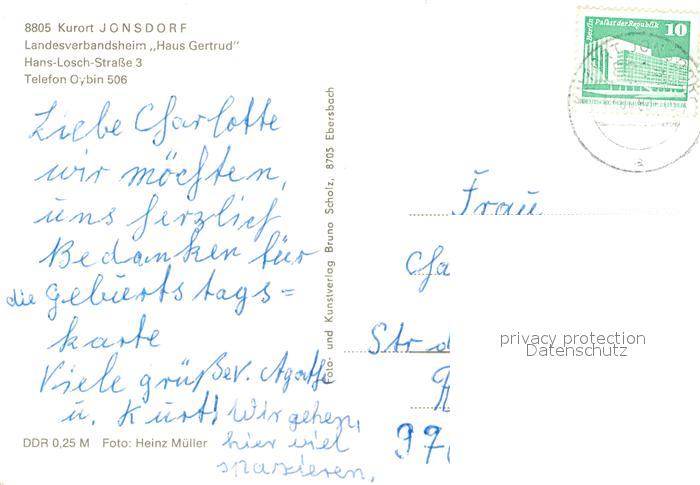 8805 Kurort JONSDORF
Landesverbandsheim „Haus Gertrud"
Hans-Losch-Straße 3
Telefon Oybin 506
Berlin Palast der Republik 10
Liebe Charlotte
wir möchten,
uns herzlich
Bedanken für
die Geburtstags=
karte
Viele grüße v. Agathe
u. Kurt! Wir gehen,
hier viel
spazieren,
DDR 0,25 M Foto: Heinz Müller
Foto- und Kunstverlag Bruno Scholz, 8705 Ebersbach
Frau
Cha
Str d
97
privacy protection
Datenschutz